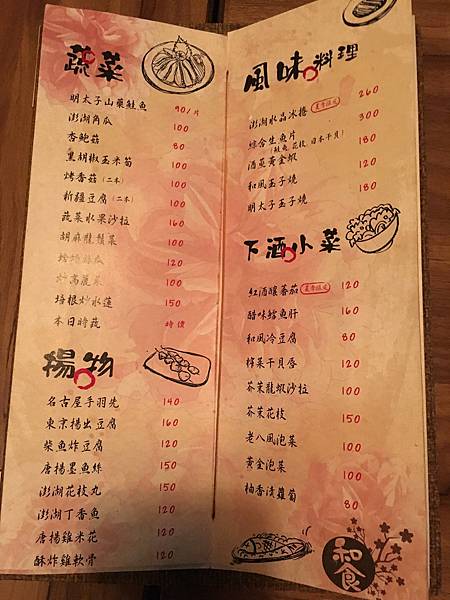 蔬菜
明太子山藥鮭魚 90/片
澎湖角瓜 100
杏鮑菇 80
黑胡椒玉米筍 100
烤香菇(二本) 100
新疆豆腐(二本) 100
蔬菜水果沙拉 160
胡麻龍鬚菜 100
蛤蜊絲瓜 120
炒高麗菜 100
培根炒水蓮 150
本日時蔬 時價
揚物
名古屋手羽先 140
東京揚出豆腐 160
柴魚炸豆腐 120
唐揚墨魚絲 150
澎湖花枝丸 150
澎湖丁香魚 120
唐揚雞米花 120
酥炸雞軟骨 120
風味料理
澎湖水晶冰捲 260
綜合生魚片 300
(鮭魚 花枝 日本干貝)
酒蒸黃金蜆 180
和風玉子燒 120
明太子玉子燒 180
下酒小菜
紅酒釀蕃茄 120
醋味鱈魚肝 160
和風冷豆腐 80
榨菜干貝唇 120
芥茉龍蝦沙拉 100
芥茉花枝 150
老八風泡菜 100
黃金泡菜 100
柚香淺蘿蔔 80
和食